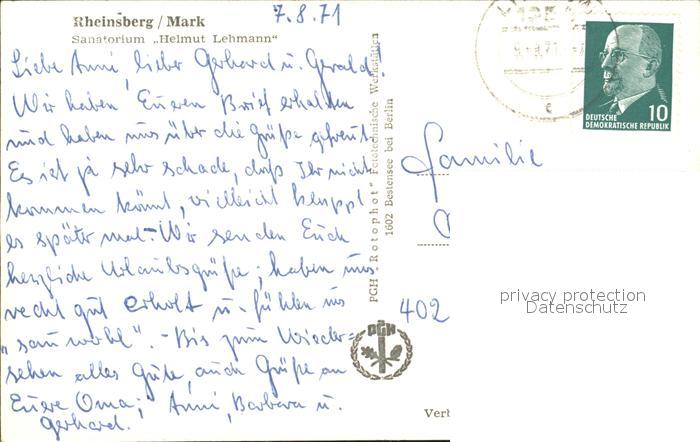 Rheinsberg / Mark
7.8.71
Sanatorium „Helmut Lehmann"
Liebe Anni, lieber Gerhard u. Gerald!
Wir haben Eueren Brief erhalten
und haben uns über die Grüße gefreut.
Es ist ja sehr schade, daß Ihr nicht
kommen könnt, vielleicht kluppt
es später mal. – Wir senden Euch
herzliche Urlaubsgrüße; haben uns
recht gut erholt u. fühlen uns
„sau wohl". – Bis zum Wieder-
sehen alles Gute, auch Grüße an
Euere Oma; Anni, Barbara u.
Gerhard.
PGH „Rotophot" Fototechnische Werkstätten
1602 Bestensee bei Berlin
PGH
DEUTSCHE
DEMOKRATISCHE REPUBLIK
10
Familie
402
privacy protection
Datenschutz
Verb